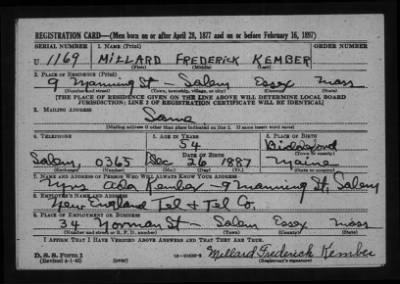 REGISTRATION CARD—(Men born on or after April 28, 1877 and on or before February 16, 1897)
SERIAL NUMBER 1. NAME (Print)
U 1169 MILLARD FREDERICK KEMBER
(First) (Middle) (Last)
2. PLACE OF RESIDENCE (Print)
9 Manning St - Salem Essex Mass
(Number and street) (Town, township, village, or city) (County) (State)
[THE PLACE OF RESIDENCE GIVEN ON THE LINE ABOVE WILL DETERMINE LOCAL BOARD
JURISDICTION; LINE 2 OF REGISTRATION CERTIFICATE WILL BE IDENTICAL]
3. MAILING ADDRESS
Same
[Mailing address if other than place indicated on line 2. If same insert word same]
4. TELEPHONE 5. AGE IN YEARS 6. PLACE OF BIRTH
54 Biddeford
DATE OF BIRTH (Town or county)
Salem, 0365 Dec 26 1887 Maine
(Mo.) (Day) (Yr.) (State or country)
7. NAME AND ADDRESS OF PERSON WHO WILL ALWAYS KNOW YOUR ADDRESS
Mrs Ada Kember - 9 Manning St, Salem
8. EMPLOYER'S NAME AND ADDRESS
New England Tel & Tel Co.
9. PLACE OF EMPLOYMENT OR BUSINESS
34 Norman St - Salem Essex Mass
(Number and street or R. F. D. number) (Town) (County) (State)
I AFFIRM THAT I HAVE VERIFIED ABOVE ANSWERS AND THAT THEY ARE TRUE.
D. S. S. Form 1
(Revised 4-1-42) (over) Millard Frederick Kember
(Registrant's signature)